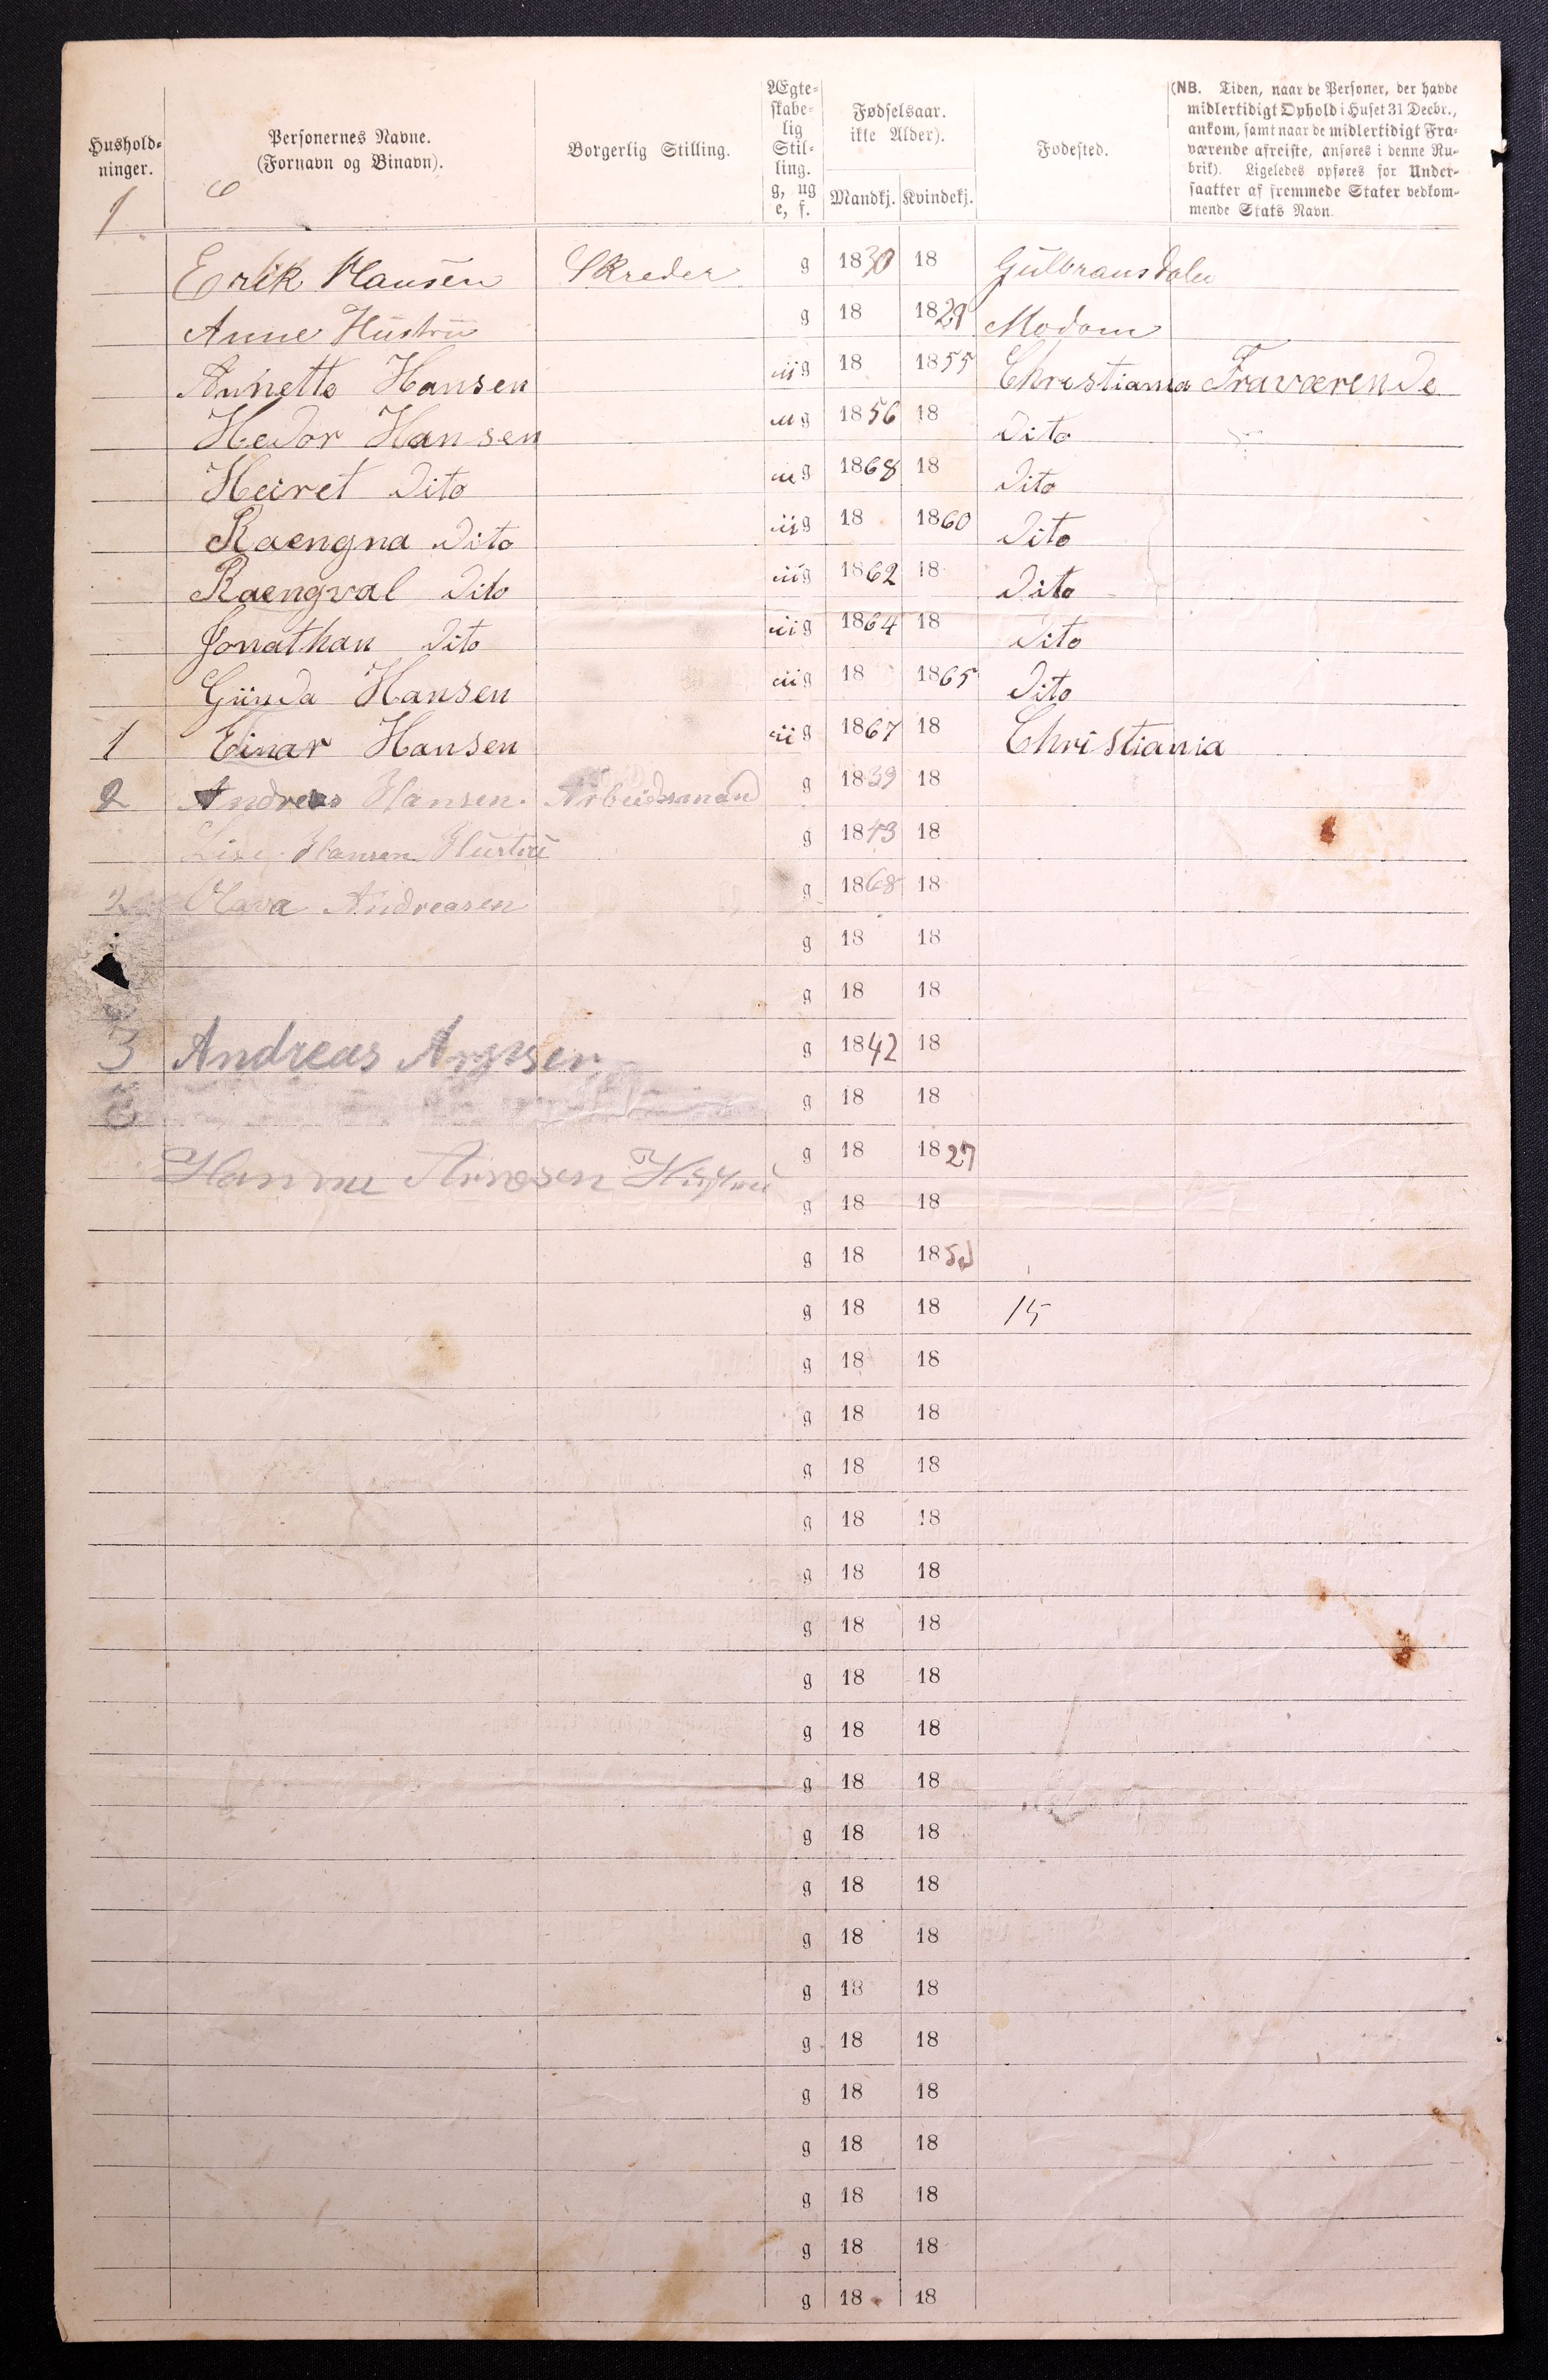 Hushold-
ninger.
Personernes Navne.
(Fornavn og Binavn).
Borgerlig Stilling.
Ægte-
skabe-
lig
Stil-
ling.
g, ug
e, f.
Fødselsaar.
ikke Alder).
Mandkj. Kvindekj.
Fødested.
(NB. Tiden, naar de Personer, der havde
midlertidigt Ophold i Huset 31 Decbr.,
ankom, samt naar de midlertidigt Fra-
værende afreiste, anføres i denne Ru-
brik). Ligeledes opføres for Under-
saatter af fremmede Stater vedkom-
mende Stats Navn.
1
Erik Hansen Skreder g 1830 18 Gulbransdalen
Anne Hustru g 18 1829 Modom
Annette Hansen ug 18 1855 Christiania Fraværende
Hedor Hansen ug 1856 18 Dito
Heiret Dito ug 1868 18 Dito
Raengna Dito ug 18 1860 Dito
Raengval Dito ug 1862 18 Dito
Jonathan Dito ug 1864 18 Dito
Gunda Hansen ug 18 1865 Dito
1 Einar Hansen ug 1867 18 Christiania
2 Andreas Hansen. Arbeidsmand g 1839 18
Lise Hansen Hustru g 1843 18
2 Olava Andreasen g 1868 18
g 18 18
g 18 18
3 Andreas Arnsen g 1842 18
g 18 18
Hanne Arnesen Hustru g 18 1827
g 18 18
g 18 18
g 18 18 15
g 18 18
g 18 18
g 18 18
g 18 18
g 18 18
g 18 18
g 18 18
g 18 18
g 18 18
g 18 18
g 18 18
g 18 18
g 18 18
g 18 18
g 18 18
g 18 18
g 18 18
g 18 18
g 18 18